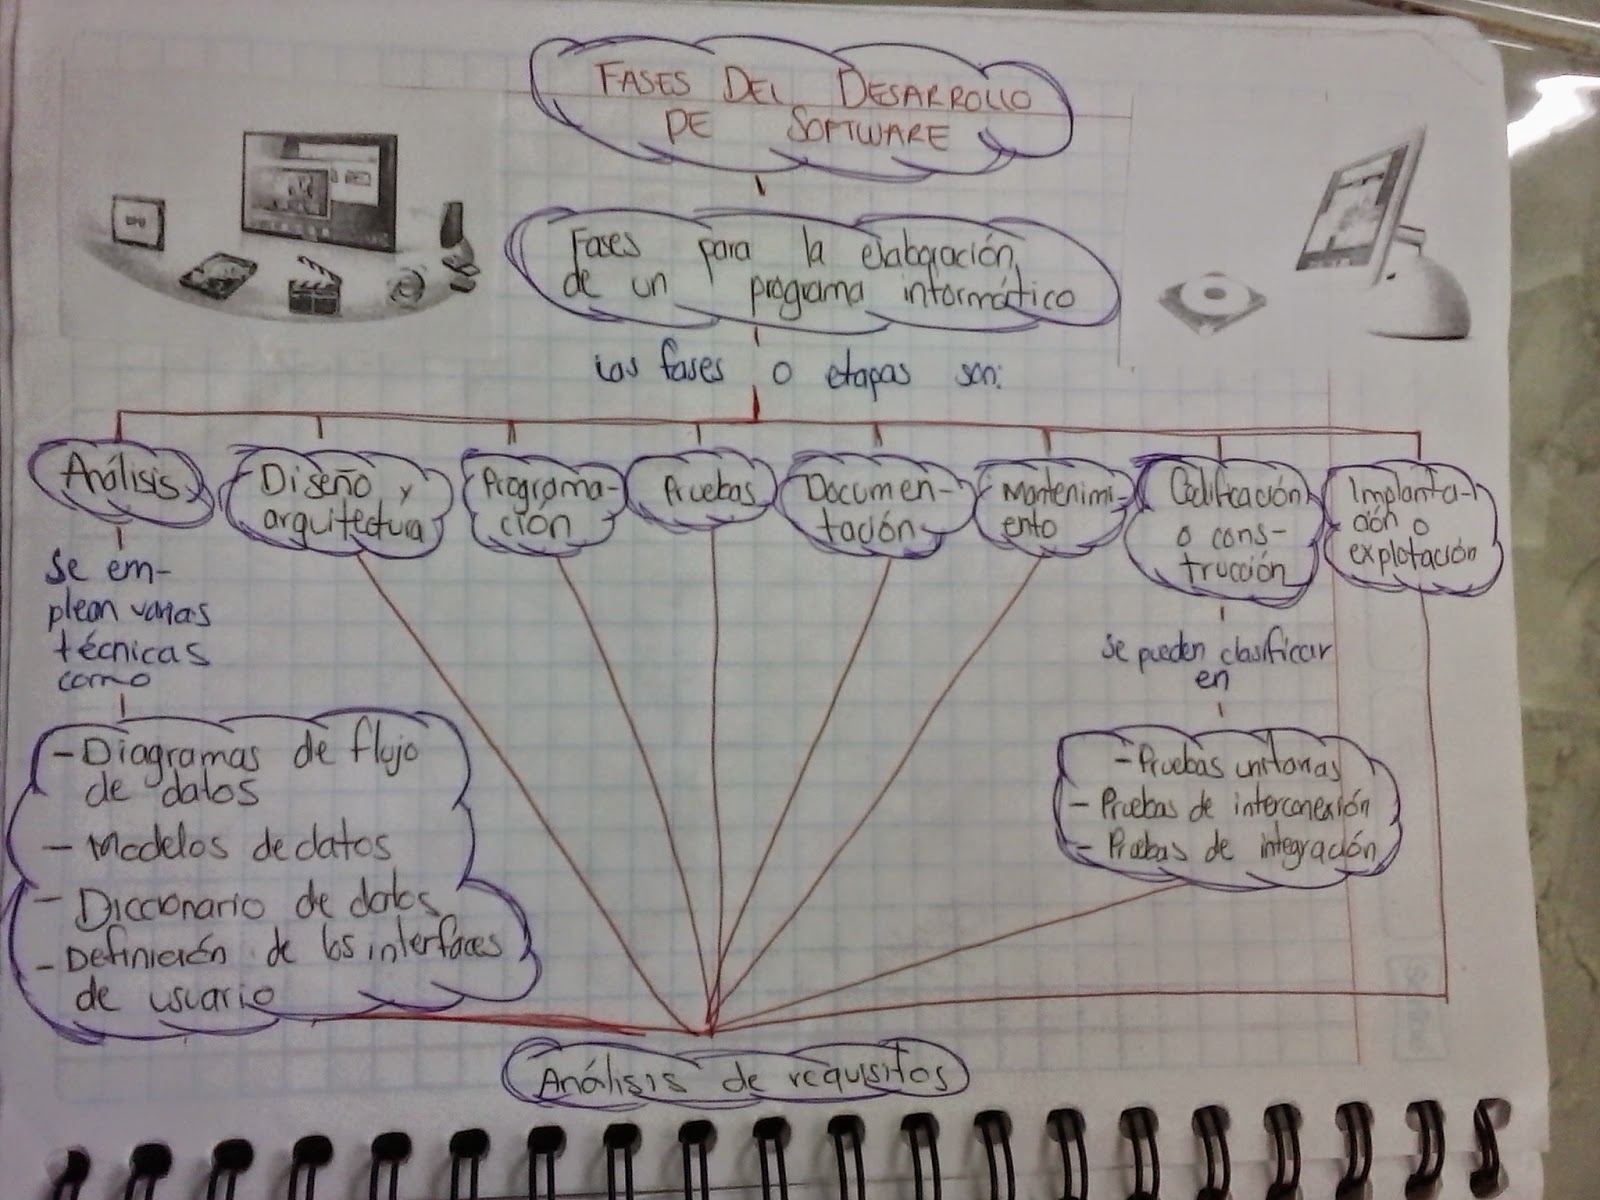 FASES DEL DESARROLLO
DE SOFTWARE
Fases para la elaboración
de un programa informático
Las fases o etapas son:
Análisis
Diseño y
arquitectura
Programa-
ción
Pruebas
Documen-
tación
Mantenimi-
ento
Codificación
o cons-
trucción
Implanta-
ción o
explotación
Se em-
plean varias
técnicas
como
Se pueden clasificar
en
- Diagramas de flujo
de datos
- Modelos de datos
- Diccionario de datos
- Definición de los interfaces
de usuario
- Pruebas unitarias
- Pruebas de interconexión
- Pruebas de integración
Análisis de requisitos